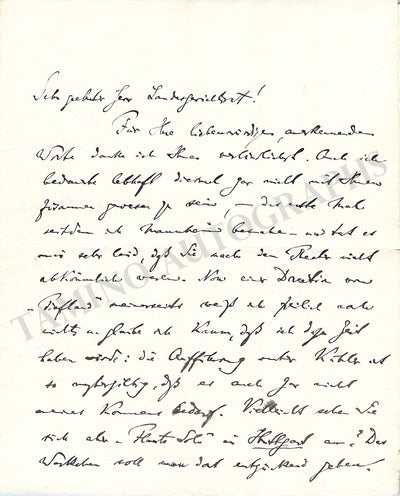 Sehr geehrter Herr Landgerichtsrat!
Für Ihre liebenswürdigen, anerkennenden
Worte danke ich Ihnen verbindlichst. Auch ich
bedauerte lebhaft diesmal gar nicht mit Ihnen
zusammen gewesen zu sein — das erste Mal
seitdem ich Mannheim besuche – und tat es
mir sehr leid, daß Sie nach dem Theater nicht
abkömmlich waren. Von einer Direktion von
"Tiefland" meinerseits weiß ich freilich noch
nichts und glaube ich kaum, daß ich dazu Zeit
haben würde: die Aufführung unter Kähler ist
so, daß es auch gar nicht
meines Kommens bedarf. Vielleicht sehen Sie
sich aber "Flauto Solo" in Stuttgart an? Das
Werkchen soll man dort entzückend geben.
TAMINO AUTOGRAPHS